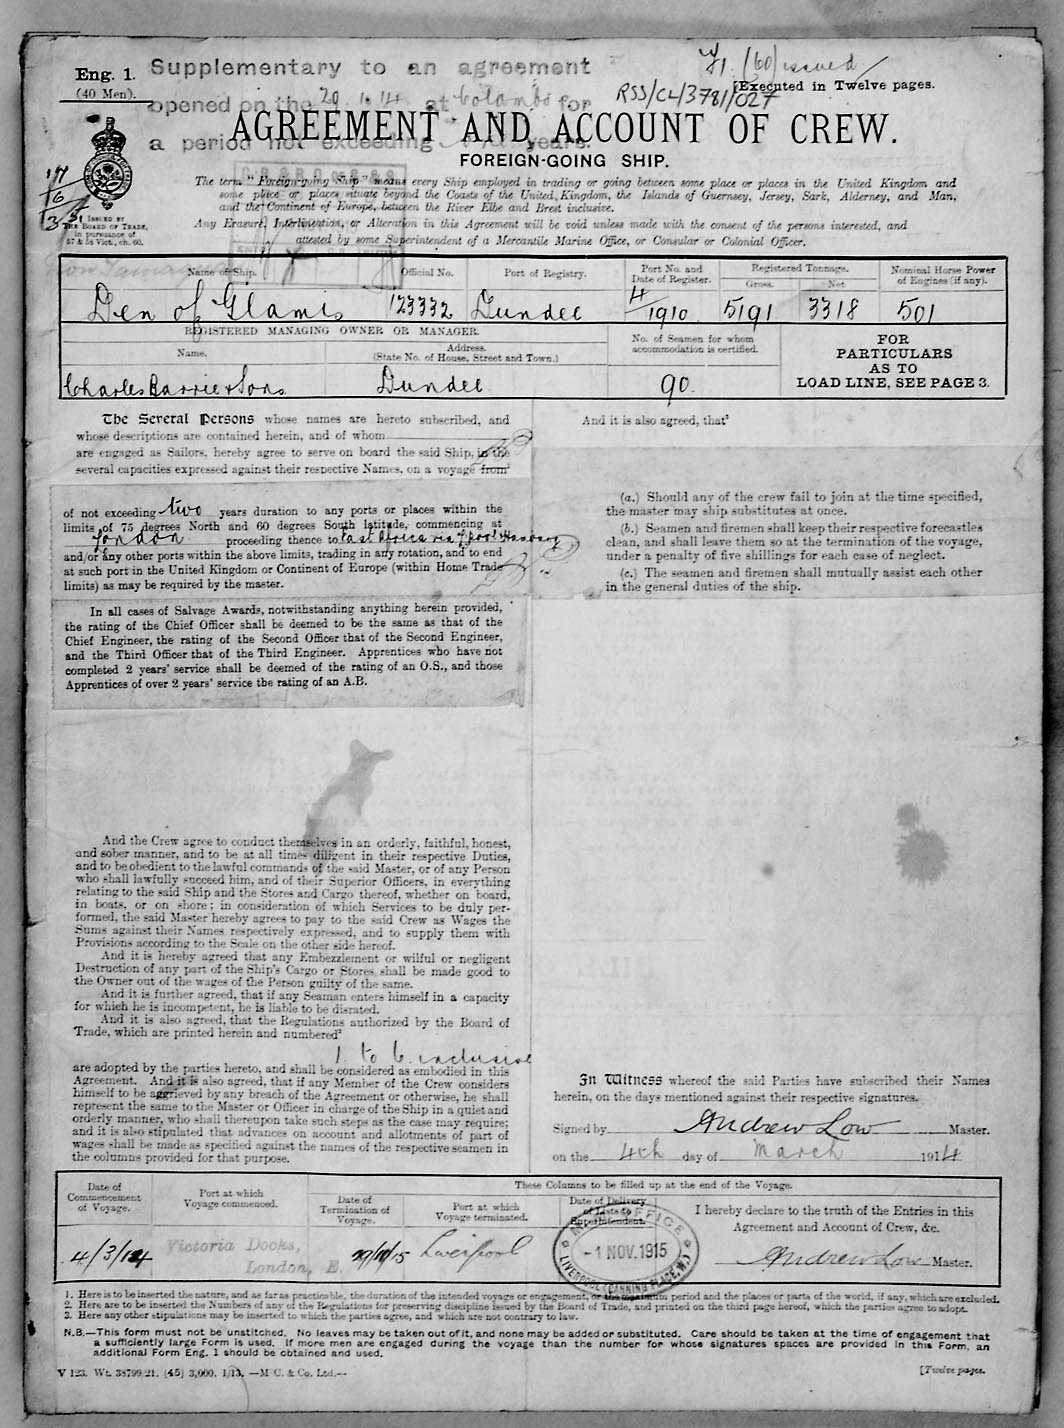 Eng. 1.
(40 Men).
Supplementary to an agreement
opened on the 29.1.14 at Colombo for
a period not exceeding years.
(60) issued
RSS/CL/3781/027
[Executed in Twelve pages.
AGREEMENT AND ACCOUNT OF CREW.
FOREIGN-GOING SHIP.
ISSUED BY
THE BOARD OF TRADE,
in pursuance of
57 & 58 Vict., ch. 60.
The term "Foreign-going Ship" means every Ship employed in trading or going between some place or places in the United Kingdom and
some place or places situate beyond the Coasts of the United Kingdom, the Islands of Guernsey, Jersey, Sark, Alderney, and Man,
and the Continent of Europe, between the River Elbe and Brest inclusive.
Any Erasure, Interlineation, or Alteration in this Agreement will be void unless made with the consent of the persons interested, and
attested by some Superintendent of a Mercantile Marine Office, or Consular or Colonial Officer.
Name of Ship. Official No. Port of Registry. Port No. and Date of Register. Registered Tonnage. Gross. Net. Nominal Horse Power of Engines (if any).
Den of Glamis 123332 Dundee 4/1910 5191 3318 501
REGISTERED MANAGING OWNER OR MANAGER.
Name. Address. (State No. of House, Street and Town.)
No. of Seamen for whom accommodation is certified.
Charles Barrie & Sons Dundee 90.
FOR
PARTICULARS
AS TO
LOAD LINE, SEE PAGE 3.
The Several Persons whose names are hereto subscribed, and
whose descriptions are contained herein, and of whom
are engaged as Sailors, hereby agree to serve on board the said Ship, in the
several capacities expressed against their respective Names, on a voyage from¹
of not exceeding two years duration to any ports or places within the
limits of 75 degrees North and 60 degrees South latitude, commencing at
London proceeding thence to East Africa via
and/or any other ports within the above limits, trading in any rotation, and to end
at such port in the United Kingdom or Continent of Europe (within Home Trade
limits) as may be required by the master.
In all cases of Salvage Awards, notwithstanding anything herein provided,
the rating of the Chief Officer shall be deemed to be the same as that of the
Chief Engineer, the rating of the Second Officer that of the Second Engineer,
and the Third Officer that of the Third Engineer. Apprentices who have not
completed 2 years' service shall be deemed of the rating of an O.S., and those
Apprentices of over 2 years' service the rating of an A.B.
And the Crew agree to conduct themselves in an orderly, faithful, honest,
and sober manner, and to be at all times diligent in their respective Duties,
and to be obedient to the lawful commands of the said Master, or of any Person
who shall lawfully succeed him, and of their Superior Officers, in everything
relating to the said Ship and the Stores and Cargo thereof, whether on board,
in boats, or on shore; in consideration of which Services to be duly per-
formed, the said Master hereby agrees to pay to the said Crew as Wages the
Sums against their Names respectively expressed, and to supply them with
Provisions according to the Scale on the other side hereof.
And it is hereby agreed that any Embezzlement or wilful or negligent
Destruction of any part of the Ship's Cargo or Stores shall be made good to
the Owner out of the wages of the Person guilty of the same.
And it is further agreed, that if any Seaman enters himself in a capacity
for which he is incompetent, he is liable to be disrated.
And it is also agreed, that the Regulations authorized by the Board of
Trade, which are printed herein and numbered²
1. to 6. inclusive
are adopted by the parties hereto, and shall be considered as embodied in this
Agreement. And it is also agreed, that if any Member of the Crew considers
himself to be aggrieved by any breach of the Agreement or otherwise, he shall
represent the same to the Master or Officer in charge of the Ship in a quiet and
orderly manner, who shall thereupon take such steps as the case may require;
and it is also stipulated that advances on account and allotments of part of
wages shall be made as specified against the names of the respective seamen in
the columns provided for that purpose.
And it is also agreed, that³
(a.) Should any of the crew fail to join at the time specified,
the master may ship substitutes at once.
(b.) Seamen and firemen shall keep their respective forecastles
clean, and shall leave them so at the termination of the voyage,
under a penalty of five shillings for each case of neglect.
(c.) The seamen and firemen shall mutually assist each other
in the general duties of the ship.
In Witness whereof the said Parties have subscribed their Names
herein, on the days mentioned against their respective signatures.
Signed by Andrew Low Master.
on the 4th day of March 1914
Date of Commencement of Voyage. Port at which Voyage commenced. These Columns to be filled up at the end of the Voyage.
Date of Termination of Voyage. Port at which Voyage terminated. Date of Delivery of Lists to Superintendent.
I hereby declare to the truth of the Entries in this
Agreement and Account of Crew, &c.
4/3/14 Victoria Docks, London, E. Liverpool
OFFICE
-1 NOV.1915
LIVERPOOL (CANNING PLACE, W.)
Andrew Low Master.
1. Here is to be inserted the nature, and as far as practicable, the duration of the intended voyage or engagement, or the maximum period and the places or parts of the world, if any, which are excluded.
2. Here are to be inserted the Numbers of any of the Regulations for preserving discipline issued by the Board of Trade, and printed on the third page hereof, which the parties agree to adopt.
3. Here any other stipulations may be inserted to which the parties agree, and which are not contrary to law.
N.B.—This form must not be unstitched. No leaves may be taken out of it, and none may be added or substituted. Care should be taken at the time of engagement that
a sufficiently large Form is used. If more men are engaged during the voyage than the number for whose signatures spaces are provided in this Form, an
additional Form Eng. 1 should be obtained and used.
V 123. Wt. 38799/21. (45) 3,000. 1/13. —M‘C. & Co. Ltd.—
[Twelve pages.